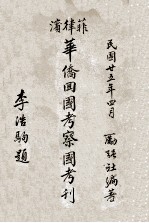 菲律濱
民國廿五年四月 社編著
華僑回國考察團專刊
李浩駒題